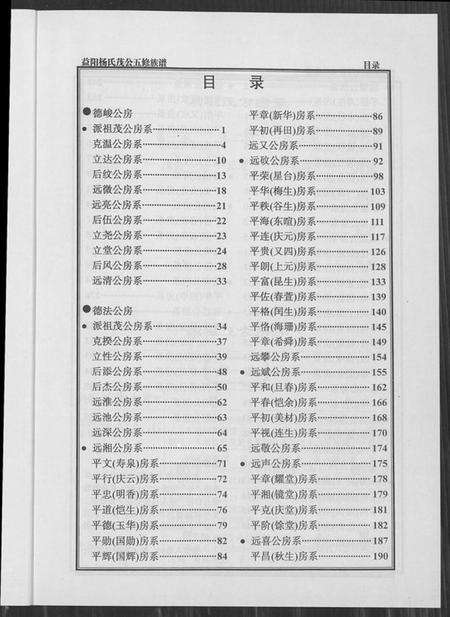 益阳杨氏茂公五修族谱
目录
目 录
●德峻公房
● 派祖茂公房系 1
克温公房系 4
立达公房系 10
后纹公房系 13
远微公房系 18
远亮公房系 21
后伍公房系 22
立尧公房系 23
立堂公房系 24
后风公房系 28
远清公房系 33
●德法公房
● 派祖茂公房系 34
克揆公房系 37
立性公房系 39
后添公房系 48
后杰公房系 50
远淮公房系 62
远池公房系 63
远深公房系 64
● 远湘公房系 65
平文(寿泉)房系 71
平行(庆云)房系 72
平忠(明香)房系 74
平道(恺生)房系 76
平德(玉华)房系 79
平勋(国勋)房系 82
平辉(国辉)房系 84
平章(新华)房系 86
平初(再田)房系 89
远又公房系 91
● 远收公房系 92
平荣(星台)房系 98
平华(梅生)房系 103
平秩(谷生)房系 109
平海(东暄)房系 111
平连(庆元)房系 117
平贵(又四)房系 126
平朗(上元)房系 128
平富(昆生)房系 133
平佐(春萱)房系 139
平格(闰生)房系 140
平恪(海珊)房系 145
平章(希舜)房系 149
远攀公房系 154
● 远斌公房系 155
平和(旦春)房系 162
平春(恺余)房系 166
平初(美材)房系 168
平视(连生)房系 170
远敬公房系 174
● 远声公房系 175
平章(耀堂)房系 178
平湘(镜堂)房系 179
平克(庆堂)房系 181
平阶(馀堂)房系 182
● 远喜公房系 187
平昌(秋生)房系 190